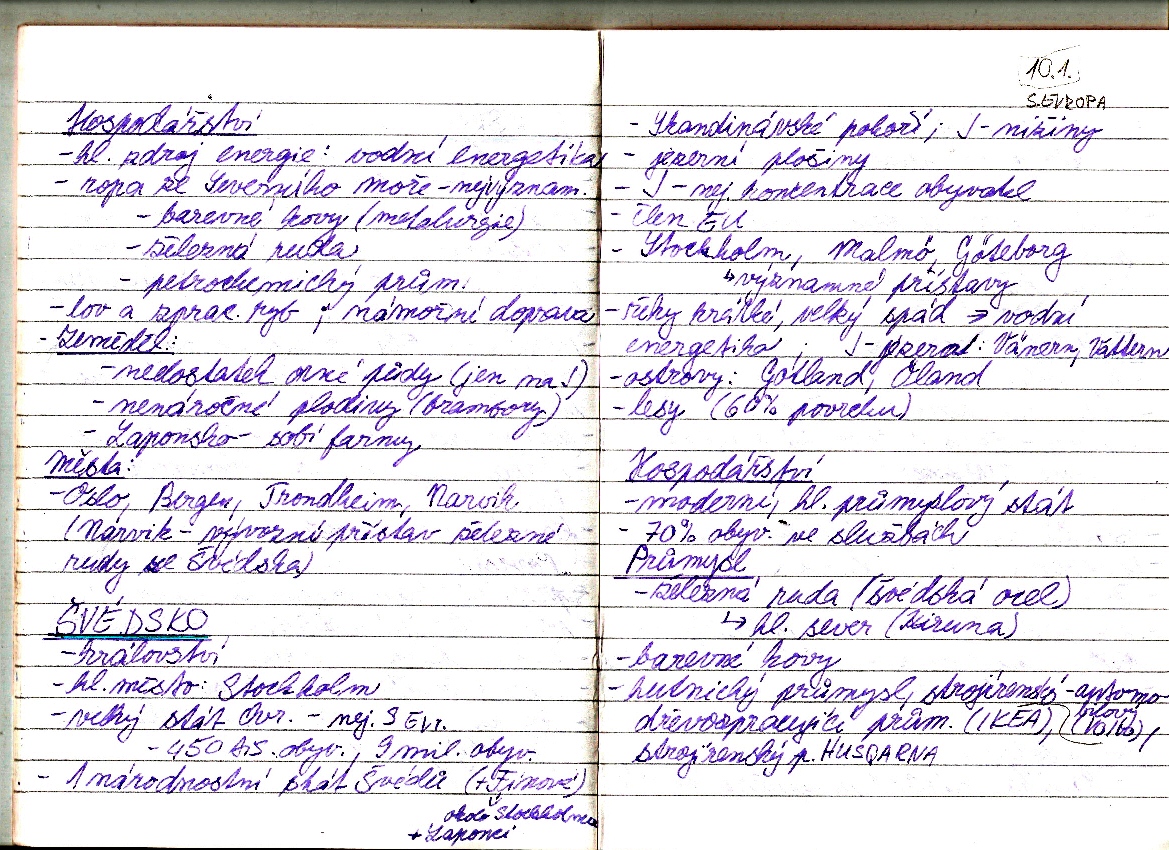 Hospodářství
- hl. zdroj energie: vodní energetika
- ropa ze Severního moře - nejvýznam.
- barevné kovy (metalurgie)
- železná ruda
- petrochemický prům.
- lov a zprac. ryb ; námořní doprava
- Zeměděl.:
- nedostatek orné půdy (jen na J)
- nenáročné plodiny (brambory)
- Laponsko - sobí farmy
Města:
- Oslo, Bergen, Trondheim, Narvik
(Narvik - vývozní přístav železné
rudy ze Švédska)
ŠVÉDSKO
- království
- hl. město: Stockholm
- velký stát Evr. - nej. S Evr.
- 450 tis. obyv., 9 mil. obyv.
- 1 národnostní stát Švédů (+ Finové)
okolí Stockholmu
+ Laponci
10.1.
S.EVROPA
- Skandinávské pohoří; J - nížiny
- jezerní plošiny
- J - nej. koncentrace obyvatel
- člen EU
- Stockholm, Malmö, Göteborg
↳ významné přístavy
- řeky krátké, velký spád ⇒ vodní
energetika ; J - jezera: Vänern, Vättern
- ostrovy: Gotland, Öland
- lesy (60% povrchu)
Hospodářství
- moderní, hl. průmyslový stát
- 70% obyv. ve službách
Průmysl
- železná ruda (švédská ocel)
↳ hl. sever (Kiruna)
- barevné kovy
- hutnický průmysl, strojírenský - automo-
bilový
dřevozpracující prům. (IKEA), (Volvo),
strojírenský p. HUSQARNA